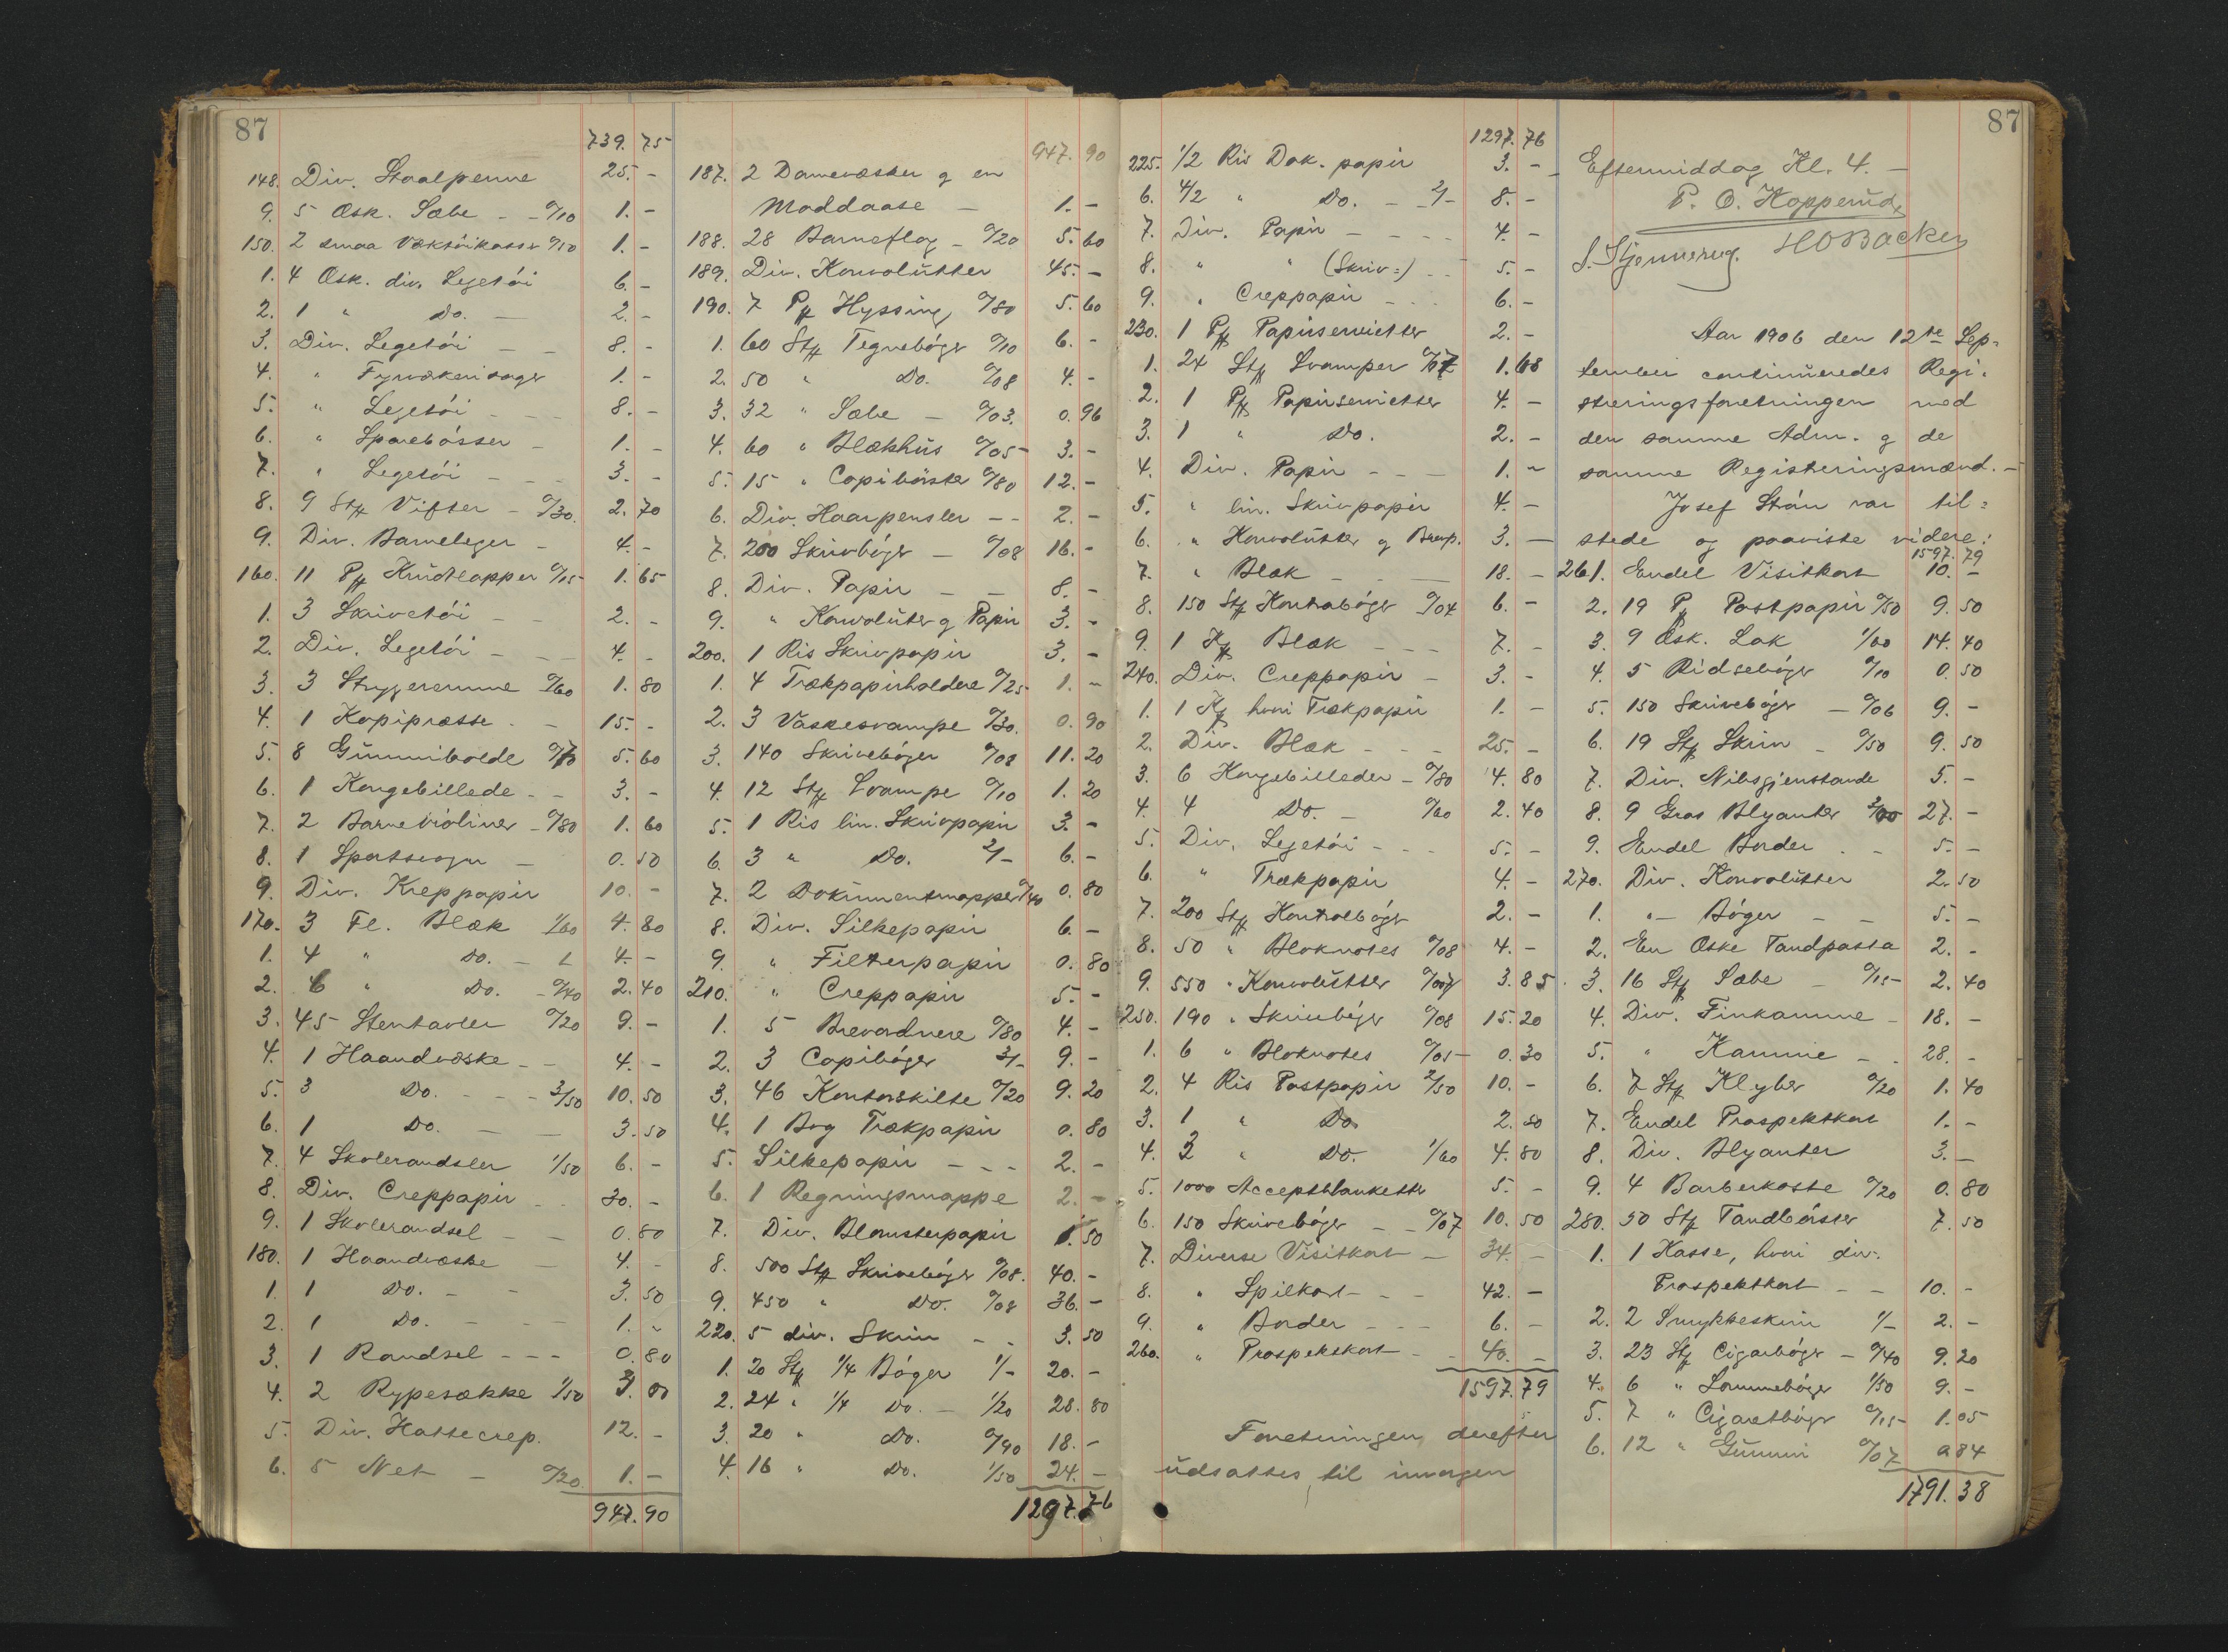 87
739. 75
148. Div. Staalpenne 25. -
9. 5 Æsk. Sæbe - - 0/10 1. -
150. 2 smaa Værktöikasser 0/50 1. -
1. 4 Æsk. div. Legetöi 6. -
2. 1 " Do. - 2. -
3. Div. Legetöi - - 8. -
4. " Fyrværkerisager 1. -
5. " Legetöi - - - 8. -
6. " Sparebösser - 1. -
7. " Legetöi - - - 3. -
8. 9 Stk Vifter - 0/30. 2. 70
9. Div. Barneleger - 4. -
160. 11 Pk Knudtlapper 0/15 1. 65
1. 3 Skrivetöi - - 2. -
2. Div. Legetöi - - - 4. -
3. 3 Strygeremme 0/60 1. 80
4. 1 Kopipresse - - 15. -
5. 8 Gummibolde 0/70 5. 60
6. 1 Kongebillede - - 3. -
7. 2 Barnevioliner - 0/80 1. 60
8. 1 Sportsvogn - 0. 50
9. Div. Kreppapir 10. -
170. 3 Fl. Blæk 1/60 4. 80
1. 4 " Do. - 1 4. -
2. 6 " Do. - 0/40 2. 40
3. 45 Stentavler 0/20 9. -
4. 1 Haandvæske - - 4. -
5. 3 Do. - - - 3/50 10. 50
6. 1 Do. - - 3. 50
7. 4 Skolerandsler 1/50 6. -
8. Div. Creppapir - - 30. -
9. 1 Skolerandsel - - 0. 80
180. 1 Haandvæske - 4. -
1. 1 Do. - - 3. 50
2. 1 Do. - - - 1. -
3. 1 Randsel - - - 0. 80
4. 2 Rypesække 1/50 3. 00
5. Div. Hattecrep. 12. -
6. 5 Net - 0/20 1. -
947. 90
947. 90
187. 2 Damevæsker g en
Maddaase - 1. -
188. 28 Barneflag - 0/20 5. 60
189. Div. Konvolutter 45. -
190. 7 Pk Hyssing 0/80 5. 60
1. 60 Stk Tegneböger 0/10 6. -
2. 50 " Do. 0/08 4. -
3. 32 " Sæbe - 0/03. 0. 96
4. 60 " Blækhus 0/05 3. -
5. 15 " Copibörster 0/80 12. -
6. Div. Haarpensler - - 2. -
7. 200 Skrivböger - 0/08 16. -
8. Div. Papir - - 8. -
9. " Konvoluter g Papir 3. -
200. 1 Ris Skrivpapir 3. -
1. 4 Trækpapirholdere 0/25 1. -
2. 3 Vaskesvampe 0/30. 0. 90
3. 140 Skrivebøger 0/08 11. 20
4. 12 Stk Svampe 0/10 1. 20
5. 1 Ris lin. Skrivpapir 3. -
6. 3 " Do. 2/- 6. -
7. 2 Dokumentmapper 0/40 0. 80
8. Div. Silkepapir 6. -
9. " Filterpapir 0. 80
210. " Creppapir 5. -
1. 5 Brevordnere 0/80 4. -
2. 3 Copibøger 3/- 9. -
3. 46 Kontorskilte 0/20 9. 20
4. 1 Bog Trækpapir 0. 80
5. Silkepapir - - - 2. -
6. 1 Regningsmappe 2. -
7. Div. Blomsterpapir 1. 50
8. 500 Stk Skrivebøger 0/08. 40. -
9. 450 " Do. 0/08 36. -
220. 5 div. Skrin - - 3. 50
1. 20 Stk 1/4 Bøger 1/- 20. -
2. 24 " 1/4 Do. - 1/20 28. 80
3. 20 " Do. 0/90 18. -
4. 16 " Do. 1/50 24. -
1297. 76
87
1297. 76
225. 1/2 Ris Dok. papir 3. -
6. 4/2 " Do. - - 2/- 8. -
7. Div. Papir - - - - 4. -
8. " " (Skriv=) - - 5. -
9. " Creppapir - - - 6. -
230. 1 Pk Papirservietter 2. -
1. 24 Stk Svamper 0/07 1. 68
2. 1 Pk Papirservietter 4. -
3. 1 " Do. 2. -
4. Div. Papir - - - 1. -
5. " lin. Skrivpapir 4. -
6. " Konvolutter g Brevp. 3. -
7. " Blæk - - - 18. -
8. 150 Stk Kontrabøger 0/04 6. -
9. 1 Kk Blæk - - - 7. -
240. Div. Creppapir - 3. -
1. 1 Kk hvori Trækpapir 1. -
2. Div. Blæk - - - 25. -
3. 6 Kongebilleder - 0/80 4. 80
4. 4 Do. - 0/60 2. 40
5. Div. Legetöi - - - 5. -
6. " Trækpapir 4. -
7. 200 Stk Kontrolbøger 2. -
8. 50 " Bloknotes 0/08 4. -
9. 550 " Konvolutter 0/007 3. 85
250. 190 " Skrivebøger 0/08 15. 20
1. 6 " Bloknotes 0/05 0. 30
2. 4 Ris Postpapir 2/50 10. -
3. 1 " Do 2. 80
4. 3 " Do. 1/60 4. 80
5. 1000 Acceptblanketter 5. -
6. 150 Skrivebøger - - 0/07 10. 50
7. Diverse Visitkort - 34. -
8. " Spilkort - - - 42. -
9. " Border - - - 6. -
260. " Prospektkort - - 40. -
1597. 79
Forretningen derefter
udsattes til imorgen
Eftermiddag Kl. 4. -
P. O. Kopperud,
S. Stjernerug. H O Backer
Aar 1906 den 12te Sep=
tember continueredes Regi=
streringsforretningen med
den samme Adm. g de
samme Registeringsmænd. -
Josef Strán var til=
stede og paaviste videre:
1597. 79
261. Endel Visitkort 10. -
2. 19 Pk Postpapir 0/50 9. 50
3. 9 Æsk. Lak 1/60 14. 40
4. 5 Ridsebøger 0/10 0. 50
5. 150 Skrivebøger - 0/06 9. -
6. 19 Stk Skrin - 0/50 9. 50
7. Div. Nibsgjenstande 5. -
8. 9 Gros Blyanter 3/00 27. -
9. Endel Border - - 5. -
270. Div. Konvolutter 2. 50
1. " - Bøger - - 5. -
2. En Æske Tandpasta 2. -
3. 16 Stk Sæbe - 0/15 2. 40
4. Div. Finkamme - 18. -
5. " Kamme - - 28. -
6. 7 Stk Klyber 0/20 1. 40
7. Endel Prospektkort 1. -
8. Div. Blyanter 3. -
9. 4 Barberkoste 0/20 0. 80
280. 50 Stk Tandbörster 7. 50
1. 1 Kasse, hvori div.
Prospektkort - - 10. -
2. 2 Smykkeskrin 1/- 2. -
3. 23 Stk Cigarbøger - 0/40 9. 20
4. 6 " Lommebøger 1/50 9. -
5. 7 " Cigaretbøger 0/15 1. 05
6. 12 " Gummi 0/07 0.84
1791. 38